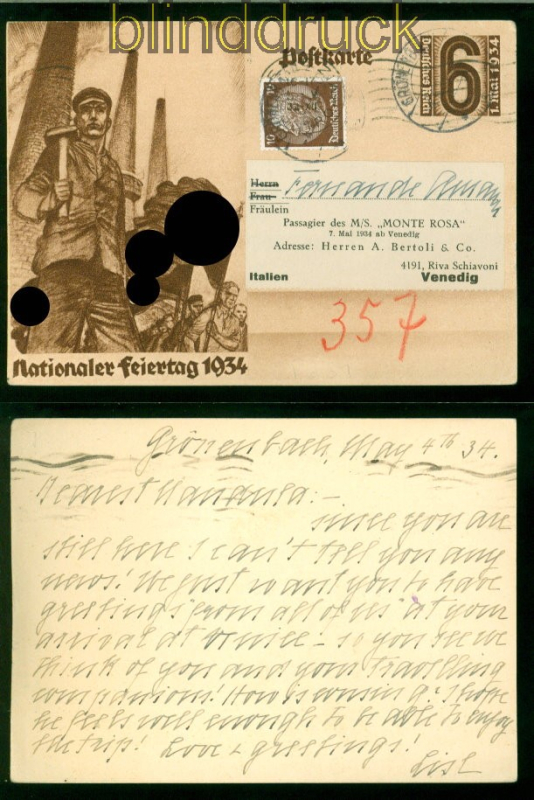 blinddruck
Postkarte
6
Deutsches Reich
1. Mai 1934
Deutsches Reich
Herrn
Frau
Fernande
Fräulein
Passagier des M/S. „MONTE ROSA"
7. Mai 1934 ab Venedig
Adresse: Herren A. Bertoli & Co.
4191, Riva Schiavoni
Italien Venedig
357
Nationaler Feiertag 1934
Grönenbach, May 4th 34.
Dearest :-
since you are
still here I can't tell you any
news! We just want you to have
greetings from all of us at your
arrival at Venice - so you see we
think of you and your travelling
companions! How is cousin G? I hope
he feels well enough to be able to enjoy
the trip! Love & greetings!
Lisl